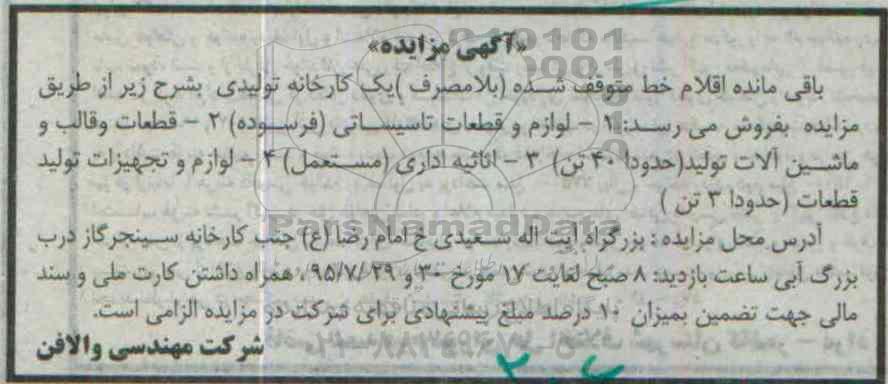 «آگهی مزایده»
باقی مانده اقلام خط متوقف شده (بلامصرف )یک کارخانه تولیدی بشرح زیر از طریق
مزایده بفروش می رسد: ۱ - لوازم و قطعات تاسیساتی (فرسوده) ۲ - قطعات وقالب و
ماشین آلات تولید(حدودا ۴۰ تن) ۳ - اثاثیه اداری (مستعمل) ۴ - لوازم و تجهیزات تولید
قطعات (حدودا ۳ تن )
آدرس محل مزایده : بزرگراه آیت اله سعیدی خ امام رضا (ع) جنب کارخانه سینجرگاز درب
بزرگ آبی ساعت بازدید: ۸ صبح لغایت ۱۷ مورخ ۳۰ و ۹۵/۷/۲۹ ، همراه داشتن کارت ملی و سند
مالی جهت تضمین بمیزان ۱۰ درصد مبلغ پیشنهادی برای شرکت در مزایده الزامی است.
شرکت مهندسی والافن
ParsNamadData